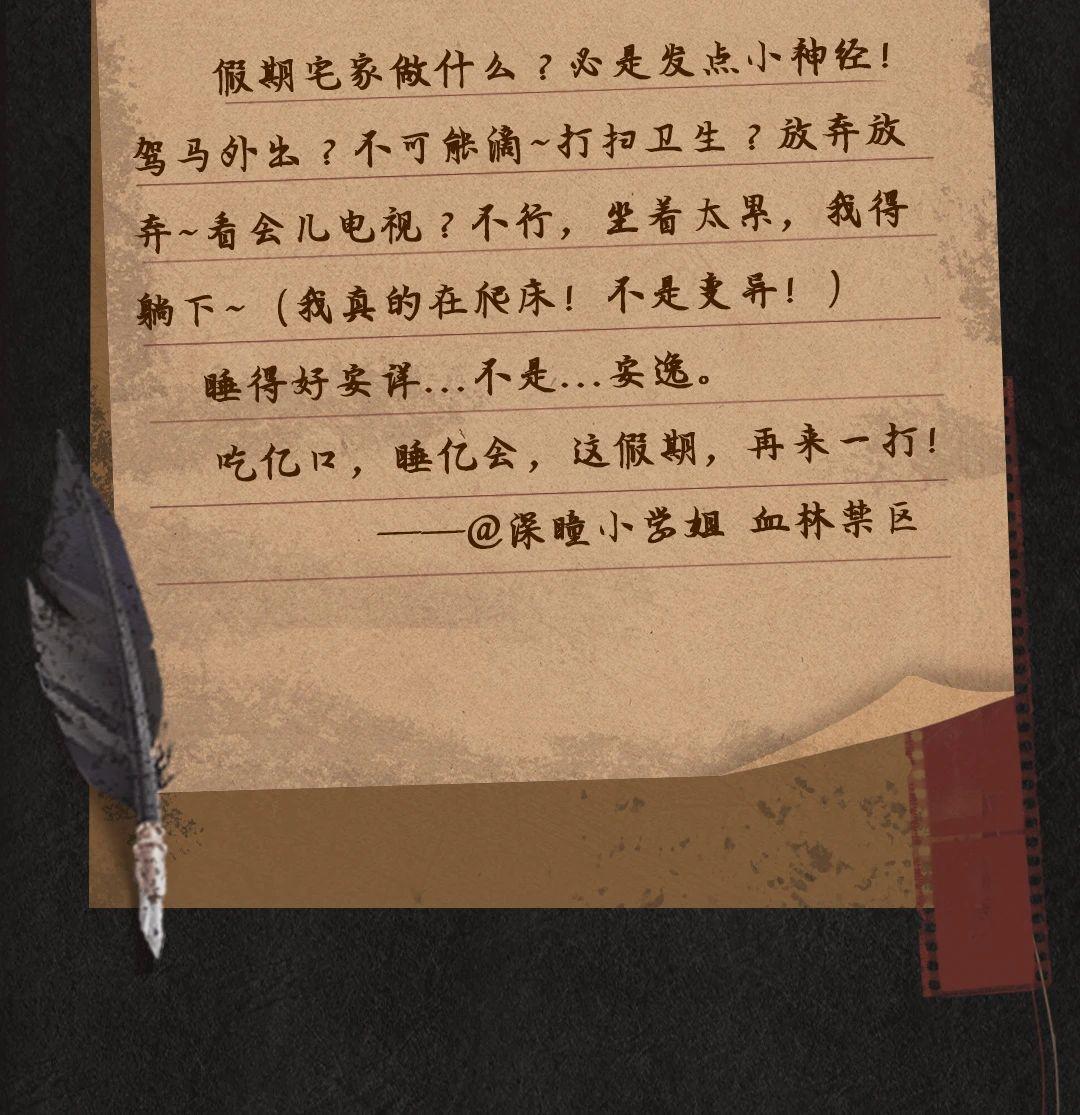 假期宅家做什么？必是发点小神经！
驾马外出？不可能滴~打扫卫生？放弃放
弃~看会儿电视？不行，坐着太累，我得
躺下~（我真的在爬床！不是变异！）
睡得好安详...不是...安逸。
吃亿口，睡亿会，这假期，再来一打！
——@深瞳小学姐 血林禁区